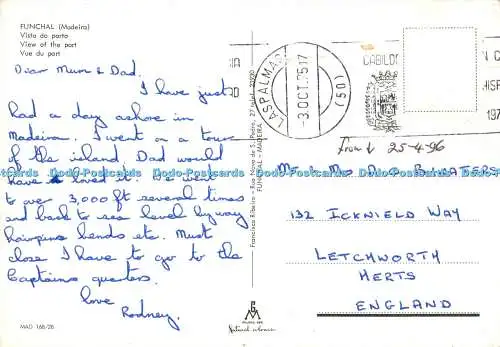 FUNCHAL (Madeira)
Vista do porto
View of the port
Vue du port
Dear Mum & Dad.
I have just
had a day ashore in
Madeira. I went on a tour
of the island Dad would
have loved it. We went
to over 3,000 ft several times
and back to sea level by way
hairpins bends etc. Must
close I have to go to the
Captains quarters.
love
Rodney.
MAD 168/28
Francisco Ribeiro - Rua Nova de S. Pedro, 27
FUNCHAL - MADEIRA
LASPALMAS
-3.OCT.75 17
(50)
CABILDO
197
25-4-96
Mr & Mrs
132 ICKNIELD WAY
LETCHWORTH
HERTS
ENGLAND
Dodo-Postcards